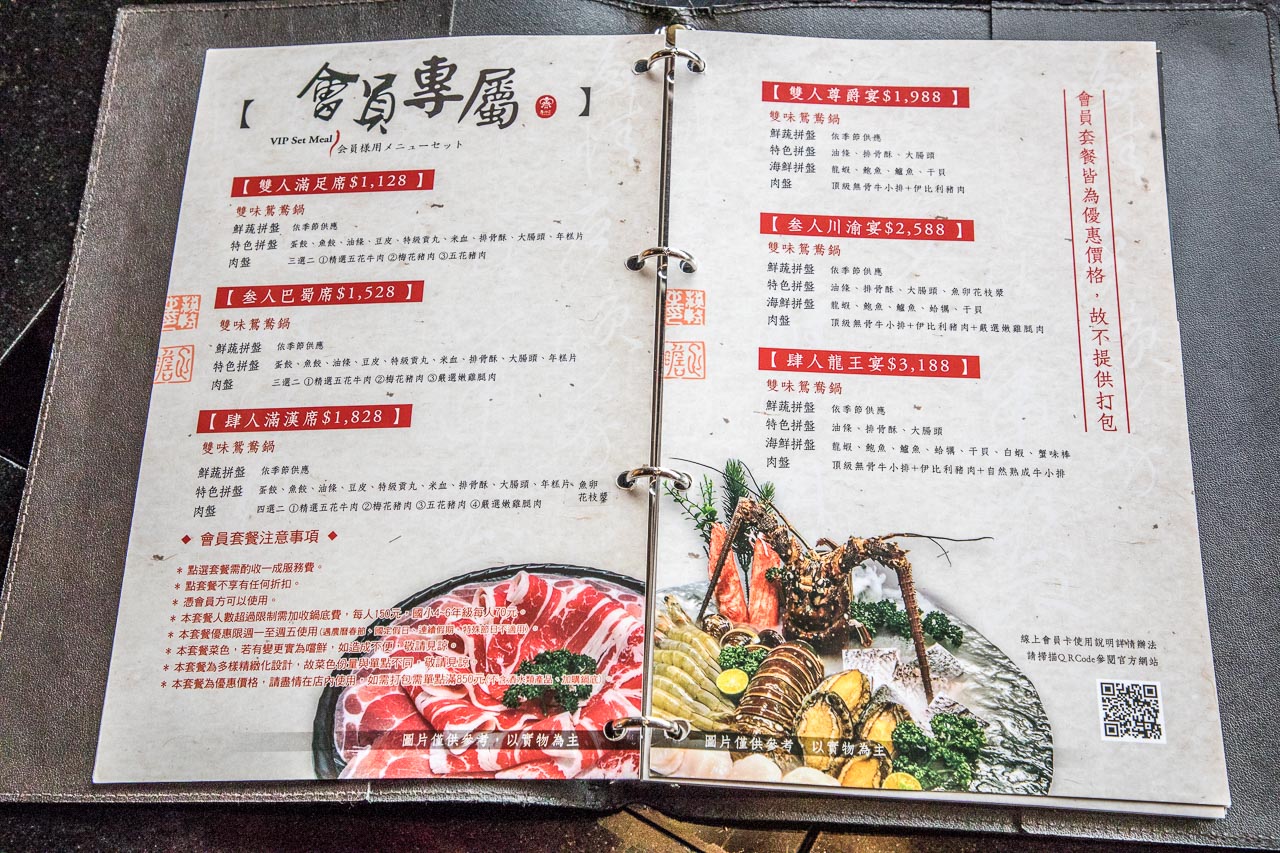 【會員專屬】
VIP Set Meal
会員様用メニューセット
【雙人滿足席$1,128】
雙味鴛鴦鍋
鮮蔬拼盤 依季節供應
特色拼盤 蛋餃、魚餃、油條、豆皮、特級貢丸、米血、排骨酥、大腸頭、年糕片
肉盤 三選二 ①精選五花牛肉 ②梅花豬肉 ③五花豬肉
【叁人巴蜀席$1,528】
雙味鴛鴦鍋
鮮蔬拼盤 依季節供應
特色拼盤 蛋餃、魚餃、油條、豆皮、特級貢丸、米血、排骨酥、大腸頭、年糕片
肉盤 三選二 ①精選五花牛肉 ②梅花豬肉 ③嚴選嫩雞腿肉
【肆人滿漢席$1,828】
雙味鴛鴦鍋
鮮蔬拼盤 依季節供應
特色拼盤 蛋餃、魚餃、油條、豆皮、特級貢丸、米血、排骨酥、大腸頭、年糕片、魚卵花枝漿
肉盤 四選二 ①精選五花牛肉 ②梅花豬肉 ③五花豬肉 ④嚴選嫩雞腿肉
◆ 會員套餐注意事項 ◆
＊點選套餐需酌收一成服務費。
＊點套餐不享有任何折扣。
＊憑會員方可以使用。
＊本套餐人數超過限制需加收鍋底費，每人150元，國小4~6年級每人70元。
＊本套餐優惠限週一至週五使用(遇農曆春節、國定假日、連續假期、特殊節日不適用)。
＊本套餐菜色，若有變更實為嚐鮮，如造成不便，敬請見諒。
＊本套餐為多樣精緻化設計，故菜色份量與單點不同，敬請見諒
＊本套餐為優惠價格，請盡情在店內使用，如需打包需單點滿850元(不含酒水類產品、加購鍋底)。
圖片僅供參考，以實物為主
【雙人尊爵宴$1,988】
雙味鴛鴦鍋
鮮蔬拼盤 依季節供應
特色拼盤 油條、排骨酥、大腸頭
海鮮拼盤 龍蝦、鮑魚、鱸魚、干貝
肉盤 頂級無骨牛小排+伊比利豬肉
【叁人川渝宴$2,588】
雙味鴛鴦鍋
鮮蔬拼盤 依季節供應
特色拼盤 油條、排骨酥、大腸頭、魚卵花枝漿
海鮮拼盤 龍蝦、鮑魚、鱸魚、蛤蠣、干貝
肉盤 頂級無骨牛小排+伊比利豬肉+嚴選嫩雞腿肉
【肆人龍王宴$3,188】
雙味鴛鴦鍋
鮮蔬拼盤 依季節供應
特色拼盤 油條、排骨酥、大腸頭
海鮮拼盤 龍蝦、鮑魚、鱸魚、蛤蠣、干貝、白蝦、蟹味棒
肉盤 頂級無骨牛小排+伊比利豬肉+自然熟成牛小排
會員套餐皆為優惠價格，故不提供打包
線上會員卡使用說明詳情辦法
請掃描QRCode參閱官方網站
圖片僅供參考，以實物為主